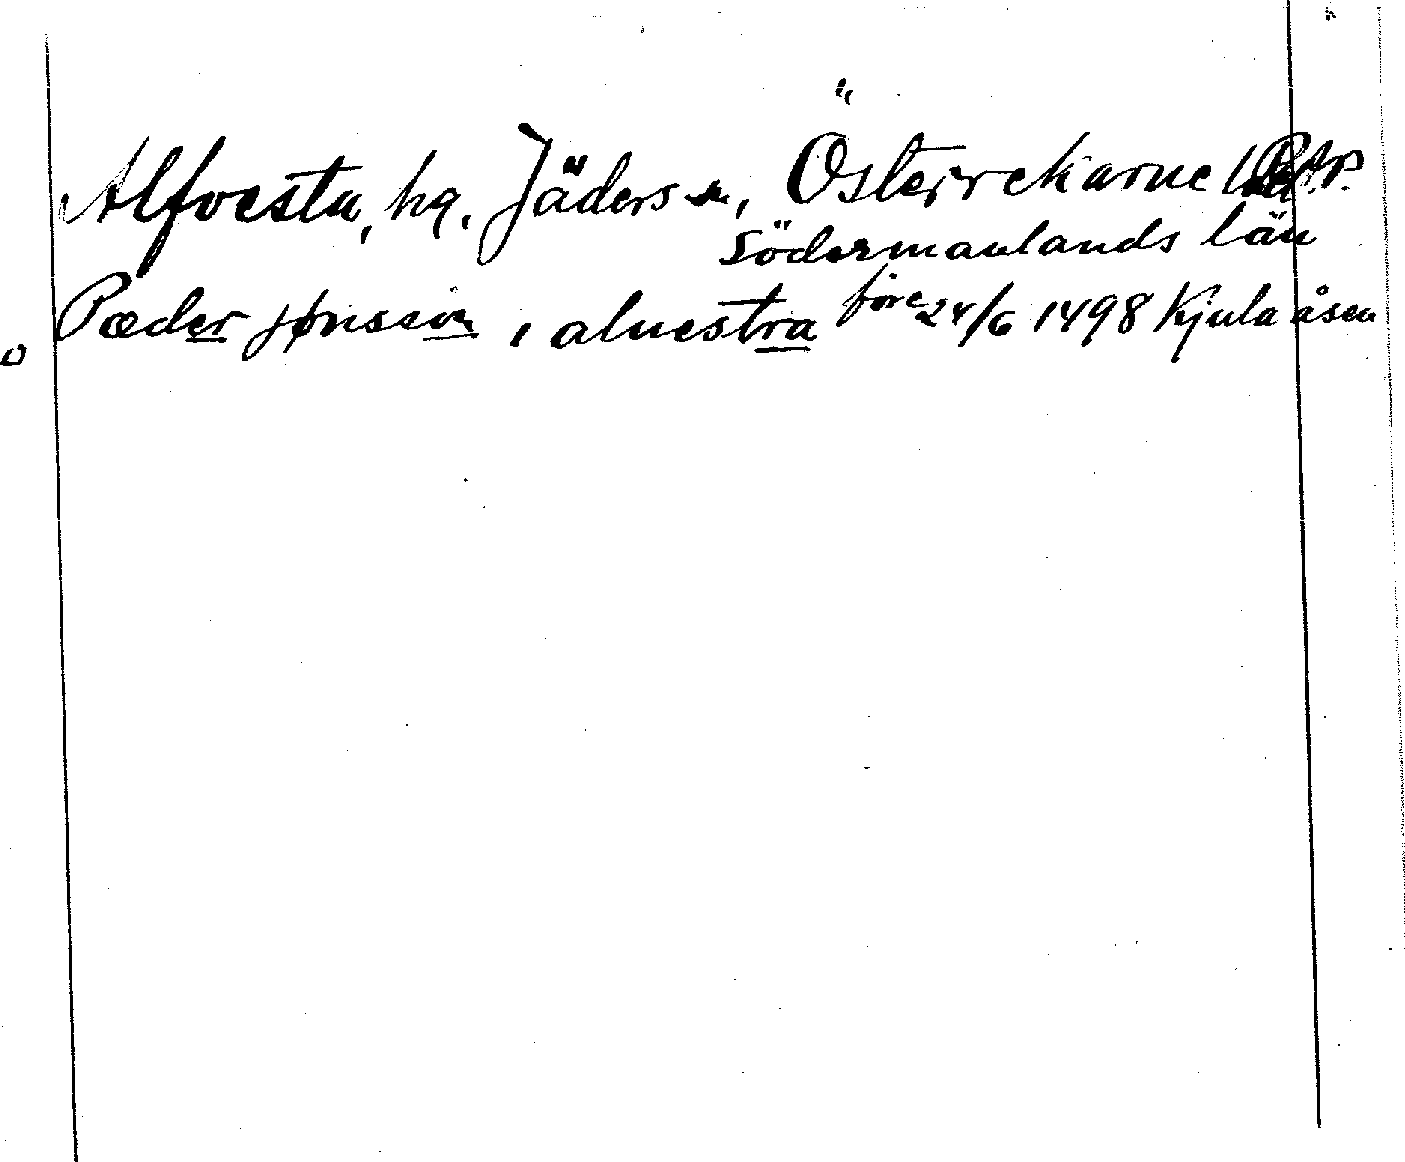 Alfvesta, hg. Jäders sn, Österrekarne
Södermanlands län
Pæder jønsson i aluestra före 24/6 1498 Kjula åsen